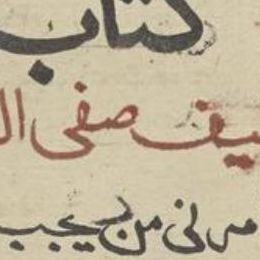 كتاب
يف صفى ال
مرنى من يجب